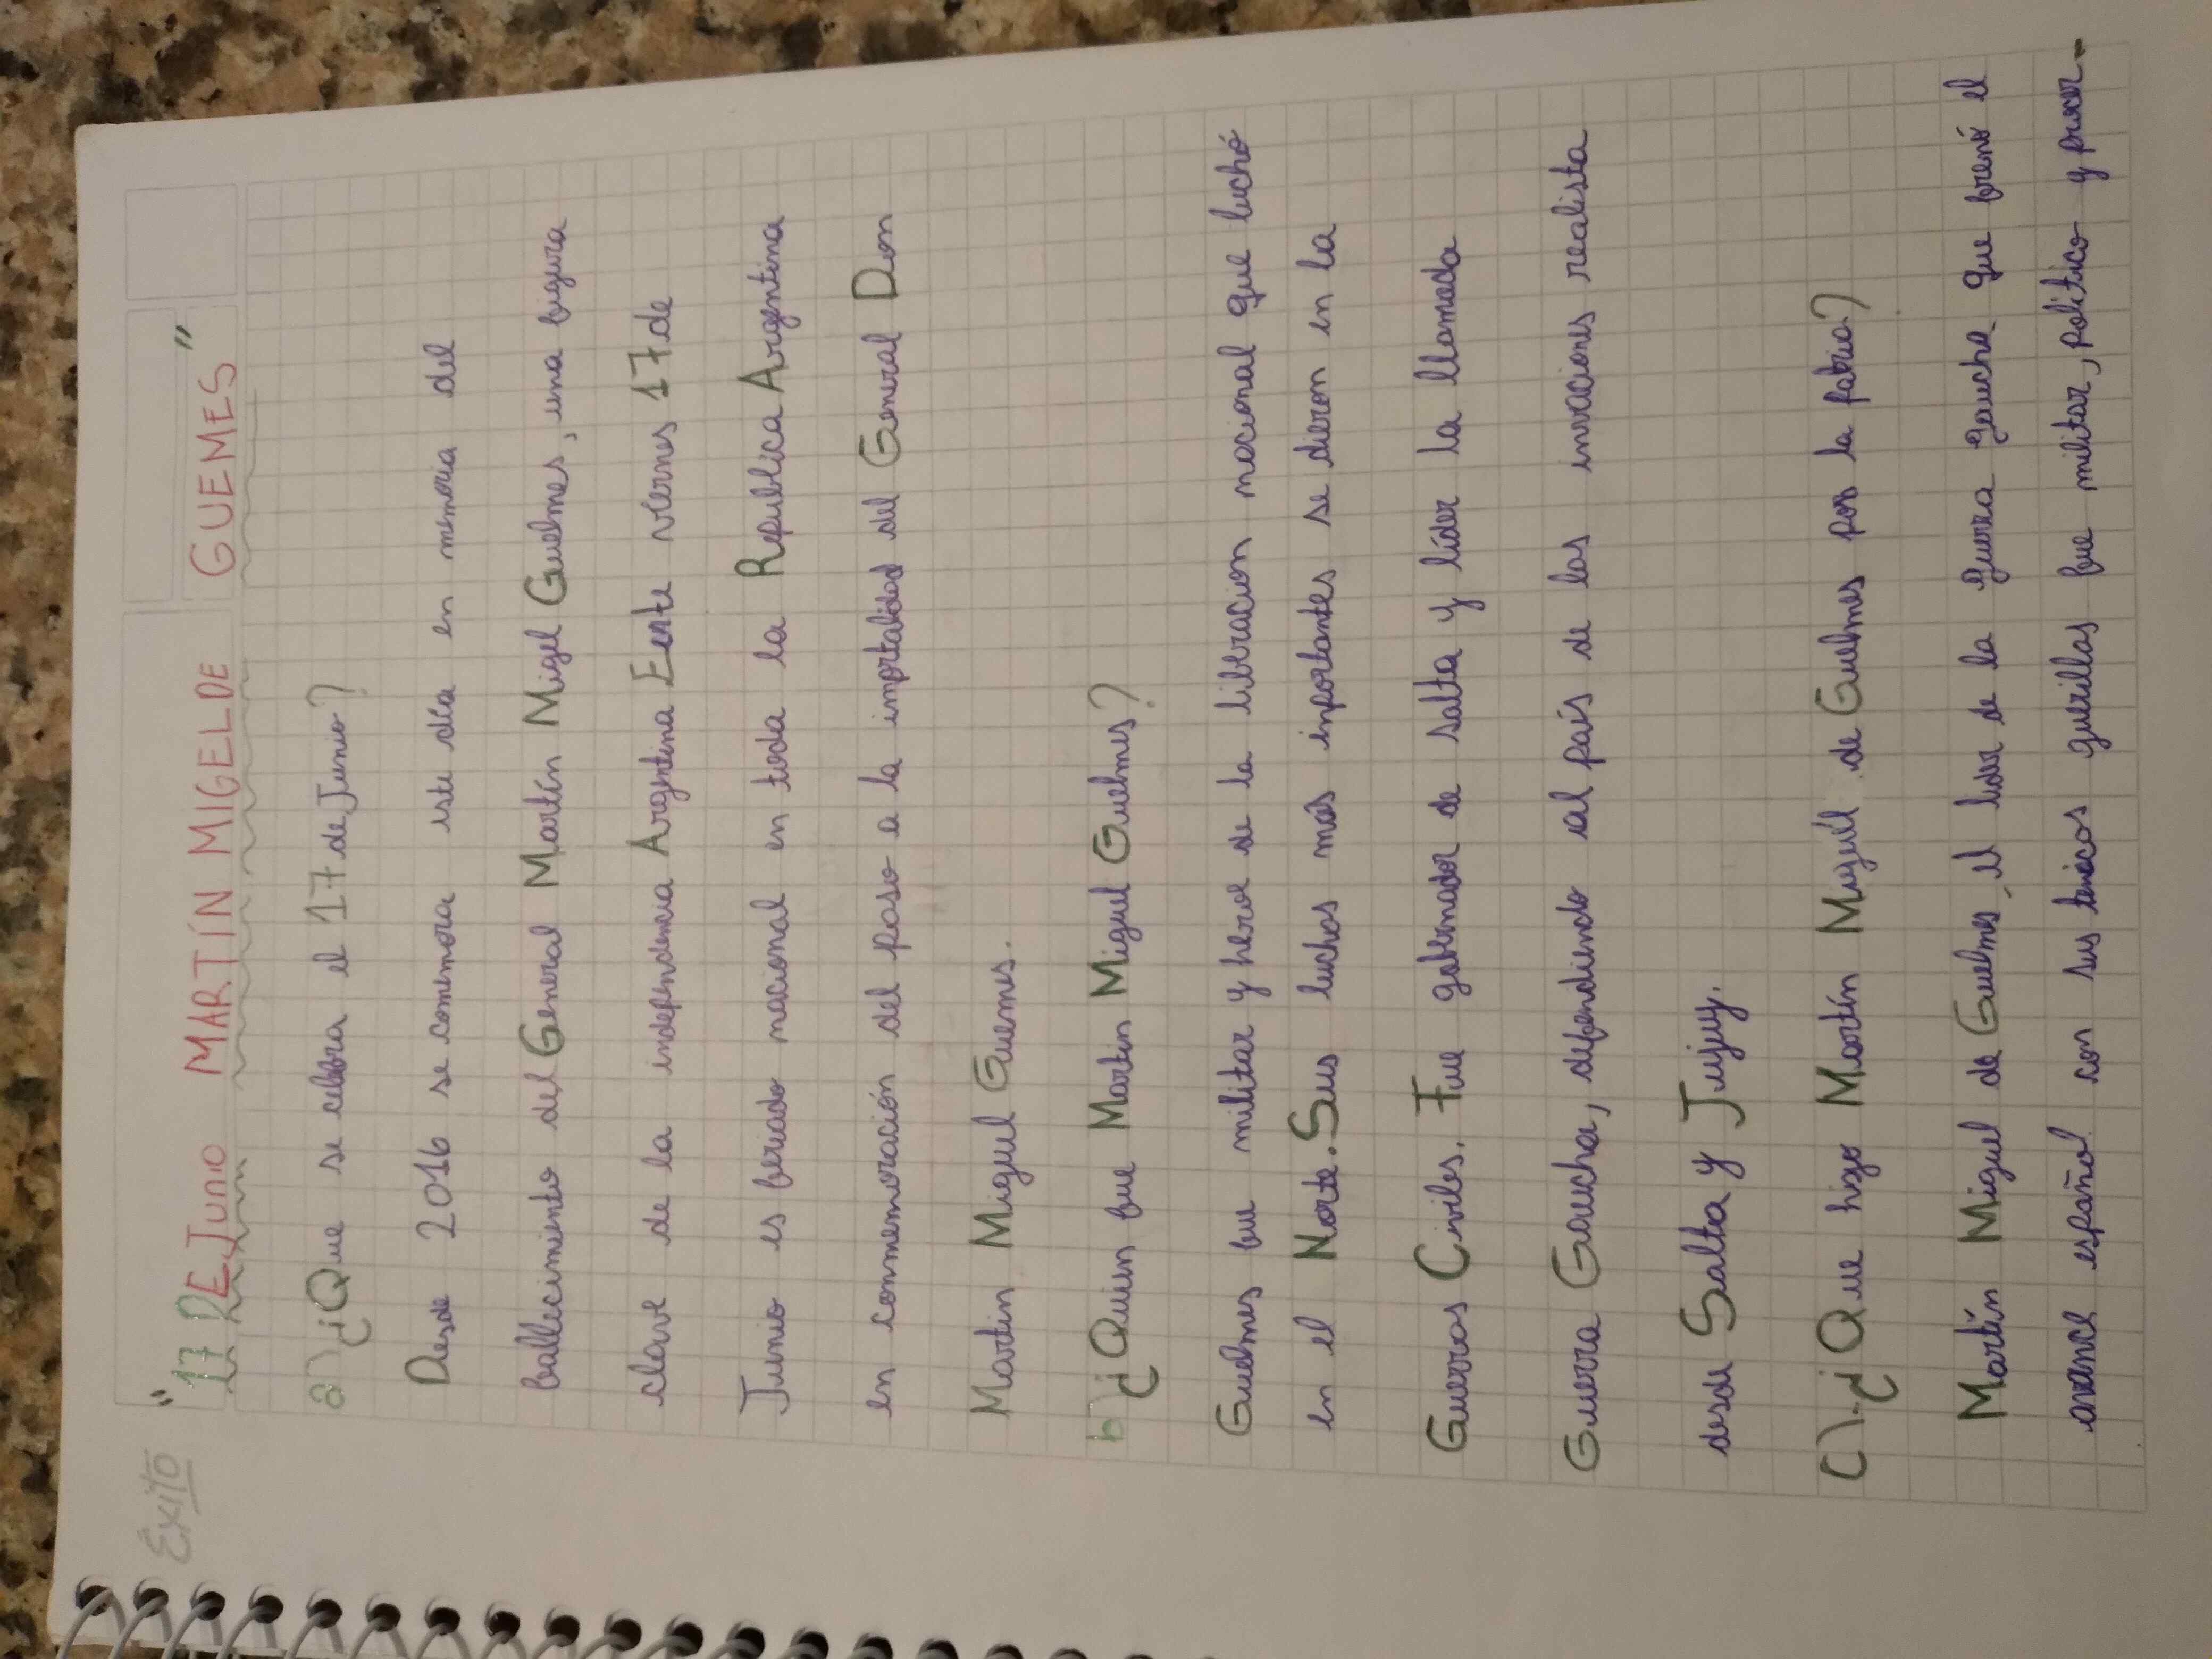 Éxito
"17 DE Junio MARTÍN MIGELDE GUEMES"
a) ¿Que se celebra el 17 de Junio?
Desde 2016 se comemora este día en memoria del
fallecimiento del General Martín Migel Guelmes, una figura
clave de la independencia Argentina Eente viernes 17 de
Junio es feriado nacional en toda la Republica Argentina
en conmemoración del paso a la inportalidad del General Don
Martin Miguel Guemes.
b) ¿Quien fue Martin Miguel Guelmes?
Guelmes fue militar y heroe de la liberacion nacional que luchó
en el Norte. Sus luchas más inportantes se dieron en la
Guerras Civiles. Fue gobernador de salta y líder la llamada
Guerra Gaucha, defendiendo al país de las invaciones realista
desde Salta y Jujuy.
C) ¿Que hizo Martín Miguél de Guelmes por la patria?
Martín Miguel de Guelmes, el lider de la guerra gaucha que frenó el
avance español con sus guerillas fue militar, político y procer-